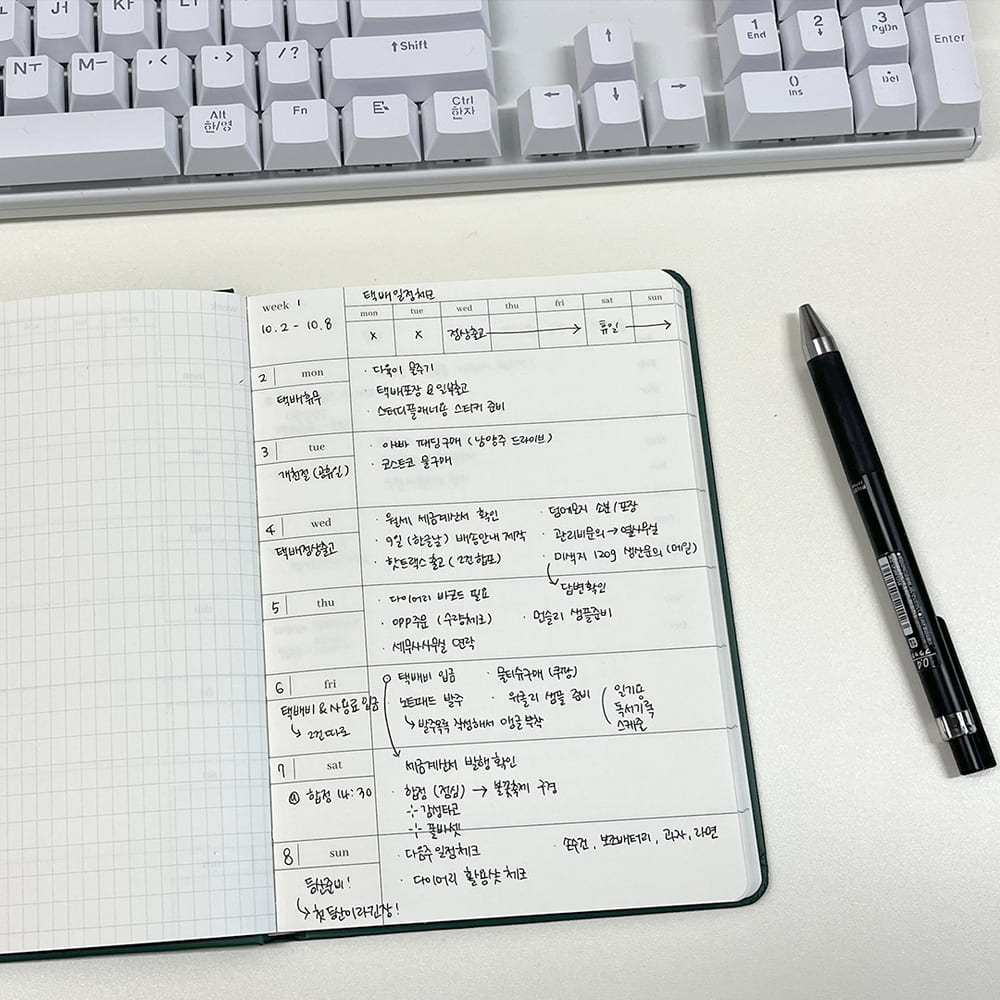 N ㅜ
M ㅡ
, <
. >
/ ?
↑ Shift
Alt
한/영
Fn
Ctrl
한자
↑
←
↓
→
1
End
2
↓
3
PgDn
Enter
0
Ins
.
Del
week 1
10.2 - 10.8
택배일정체크
mon tue wed thu fri sat sun
x x 정상출고 → 휴일 →
2 mon
택배휴무
· 다육이 물주기
· 택배포장 & 일부출고
· 스터디플래너용 스티커 준비
3 tue
개천절 (공휴일)
· 아빠 패딩구매 (남양주 드라이브)
· 코스트코 물구매
4 wed
택배정상출고
· 월세 세금계산서 확인
· 9일 (한글날) 배송안내 제작
· 핫트랙스 출고 (2건합포)
· 덤메모지 소분/포장
· 관리비문의 → 옆사무실
· 미색지 120g 생산문의 (메일)
↳ 답변확인
5 thu
· 다이어리 바코드 필요
· OPP주문 (수량체크)
· 먼슬리 샘플준비
· 세무사사무실 연락
6 fri
택배비 & 사용료 입금
↳ 2건 따로
택배비 입금
· 물티슈구매 (쿠팡)
· 노트패드 발주
↳ 발주목록 작성해서 앵글 부착
· 위클리 샘플 준비
일기용
독서기록
스케줄
7 sat
합정 14:30
세금계산서 발행확인
· 합정 (점심) → 불꽃축제 구경
감성타코
폴바셋
8 sun
등산준비!
↳ 첫 등산이라 긴장!
· 다음주 일정체크
· 다이어리 활용샷 체크
· 손수건, 보조배터리, 과자, 라면
PILOT
0.4